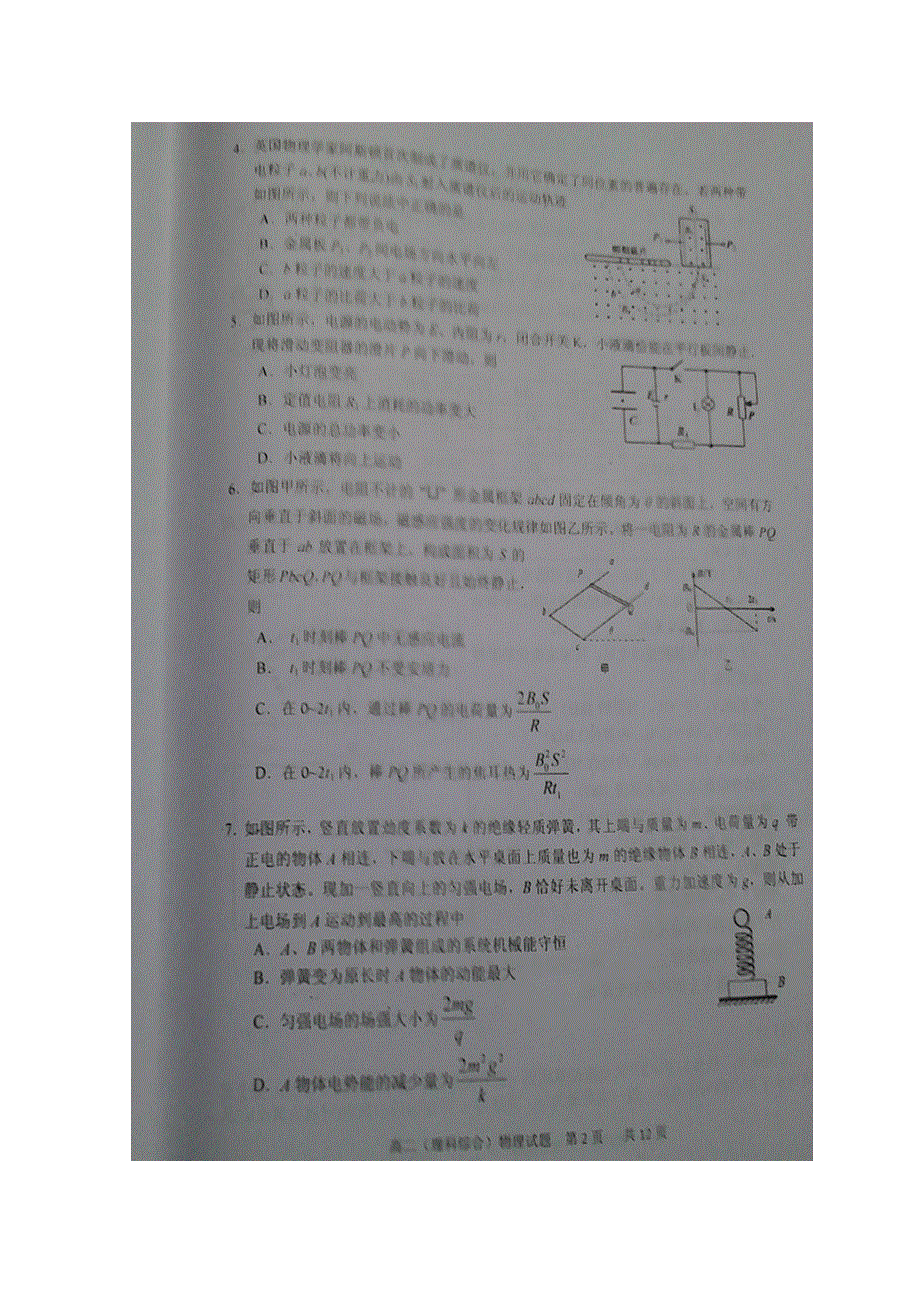 4. 英国物理学家阿斯顿首次制成了质谱仪,并用它确定了同位素的普遍存在。若两种带
电粒子 a、b(不计重力)由 S₁射入质谱仪后的运动轨迹
如图所示,则下列说法中正确的是
A. 两种粒子都带负电
B. 金属板 P₁、P₂间电场方向水平向左
C. b 粒子的速度大于 a 粒子的速度
D. a 粒子的比荷大于 b 粒子的比荷
照相底片
5. 如图所示,电源的电动势为 E、内阻为 r,闭合开关 K,小液滴恰能在平行板间静止,
现将滑动变阻器的滑片 P 向下滑动,则
A. 小灯泡变亮
B. 定值电阻 R₁上消耗的功率变大
C. 电源的总功率变小
D. 小液滴将向上运动
K
E r
C
L
R P
R₁
6. 如图甲所示,电阻不计的“凵”形金属框架 abcd 固定在倾角为 θ 的斜面上,空间有方
向垂直于斜面的磁场,磁感应强度的变化规律如图乙所示。将一电阻为 R 的金属棒 PQ
垂直于 ab 放置在框架上,构成面积为 S 的
矩形 PbcQ,PQ 与框架接触良好且始终静止,
则
A. t₁时刻棒 PQ 中无感应电流
B. t₁时刻棒 PQ 不受安培力
C. 在 0~2t₁内,通过棒 PQ 的电荷量为 2B₀S/R
D. 在 0~2t₁内,棒 PQ 所产生的焦耳热为 B₀²S²/Rt₁
甲 乙
7. 如图所示,竖直放置劲度系数为 k 的绝缘轻质弹簧,其上端与质量为 m、电荷量为 q 带
正电的物体 A 相连,下端与放在水平桌面上质量也为 m 的绝缘物体 B 相连,A、B 处于
静止状态。现加一竖直向上的匀强电场,B 恰好未离开桌面。重力加速度为 g,则从加
上电场到 A 运动到最高的过程中
A. A、B 两物体和弹簧组成的系统机械能守恒
B. 弹簧变为原长时 A 物体的动能最大
C. 匀强电场的场强大小为 2mg/q
D. A 物体电势能的减少量为 2m²g²/k
A
B
高二(理科综合)物理试题 第 2 页 共 12 页